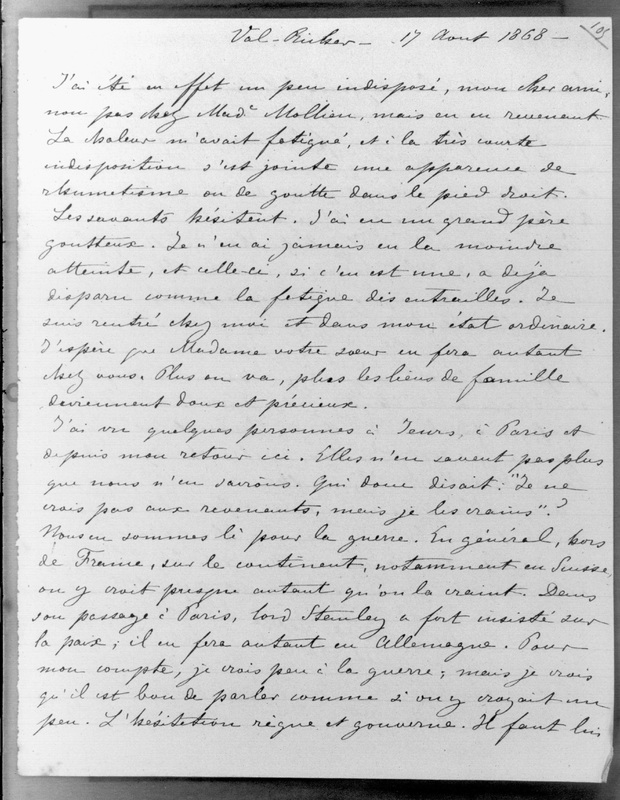 105
Val-Richer - 17 Aout 1868 -
J'ai été en effet un peu indisposé, mon cher ami,
non pas chez Made Mollien, mais en en revenant.
La chaleur m'avait fatigué, et à la très courte
indisposition s'est jointe une apparence de
rhumatisme ou de goutte dans le pied droit.
Les savants hésitent. J'ai eu un grand père
goutteux. Je n'en ai jamais eu la moindre
atteinte, et celle-ci, si c'en est une, a déjà
disparu comme la fatigue des entrailles. Je
suis rentré chez moi et dans mon état ordinaire.
J'espère que Madame votre sœur en fera autant
chez vous. Plus on va, plus les liens de famille
deviennent doux et précieux.
J'ai vu quelques personnes à Jeurs, à Paris et
depuis mon retour ici. Elles n'en savent pas plus
que nous n'en savons. Qui donc disait : "Je ne
crois pas aux revenants, mais je les crains".?
Nous en sommes là pour la guerre. En général, hors
de France, sur le continent, notamment en Suisse,
on y croit presque autant qu'on la craint. Dans
son passage à Paris, lord Stanley a fort insisté sur
la paix ; il en fera autant en Allemagne. Pour
mon compte, je crois peu à la guerre ; mais je crois
qu'il est bon de parler comme si on y croyait un
peu. L'hésitation règne et gouverne. Il faut lui